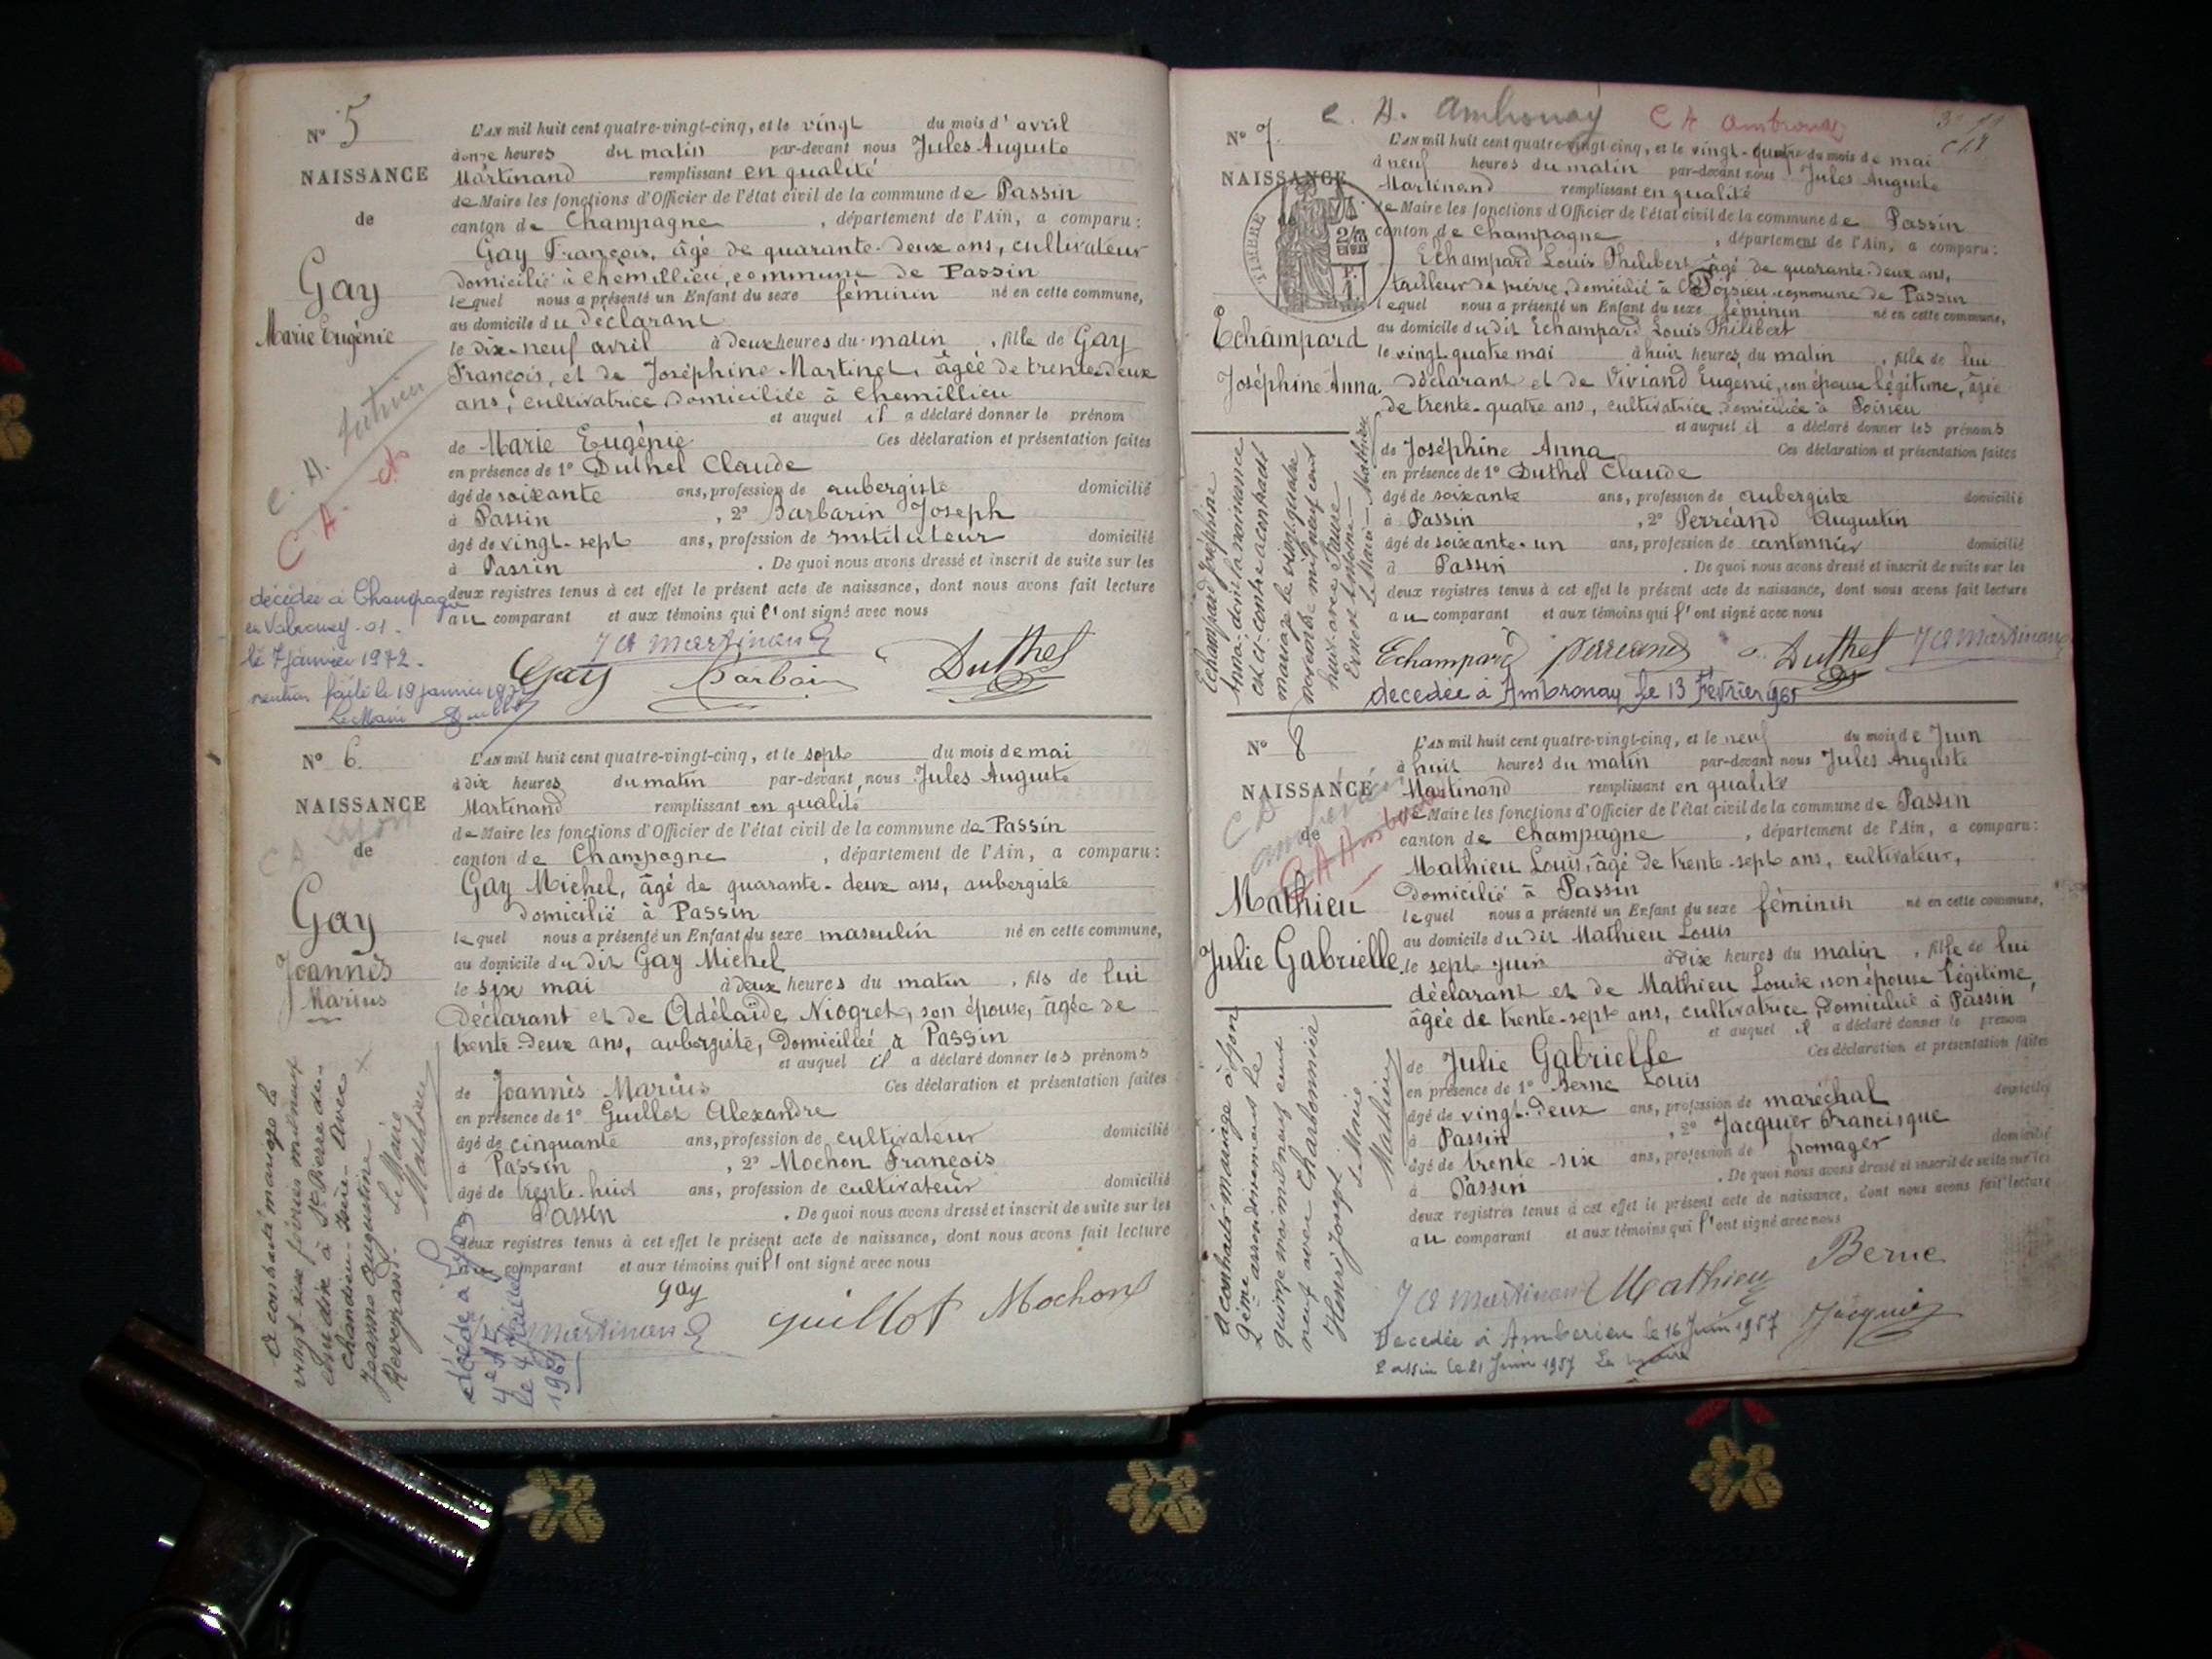 N° 5
NAISSANCE
de
Gay
Marie Eugénie
C. A.
C. A.
décédée à Champagne
en Valromey - 01 -
le 7 janvier 1972 -
mention faite le 19 janvier 1972
Le Maire
L'AN mil huit cent quatre-vingt-cinq, et le vingt du mois d'avril
à onze heures du matin par-devant nous Jules Auguste
Martinand remplissant en qualité
de Maire les fonctions d'Officier de l'état civil de la commune de Passin
canton de Champagne, département de l'Ain, a comparu:
Gay François, âgé de quarante-deux ans, cultivateur
domicilié à Chemillieu, commune de Passin
lequel nous a présenté un Enfant du sexe féminin né en cette commune,
au domicile du déclarant
le dix-neuf avril à deux heures du matin, fille de Gay
François, et de Joséphine Martinet, âgée de trente-deux
ans, cultivatrice domiciliée à Chemillieu
et auquel il a déclaré donner le prénom
de Marie Eugénie Ces déclaration et présentation faites
en présence de 1° Duthel Claude
âgé de soixante ans, profession de aubergiste domicilié
à Passin, 2° Barbarin Joseph
âgé de vingt-sept ans, profession de instituteur domicilié
à Passin. De quoi nous avons dressé et inscrit de suite sur les
deux registres tenus à cet effet le présent acte de naissance, dont nous avons fait lecture
au comparant et aux témoins qui l'ont signé avec nous
J A Martinand
Gay Barbarin Duthel
N° 6.
NAISSANCE
de
Gay
Joannès
Marius
A contracté mariage le
vingt-six février mil neuf
cent dix à St Pierre de
Chandieu - Isère - avec
Jeanne Augustine
Le Maire
Mathieu
L'AN mil huit cent quatre-vingt-cinq, et le sept du mois de mai
à dix heures du matin par-devant nous Jules Auguste
Martinand remplissant en qualité
de Maire les fonctions d'Officier de l'état civil de la commune de Passin
canton de Champagne, département de l'Ain, a comparu:
Gay Michel, âgé de quarante-deux ans, aubergiste
domicilié à Passin
lequel nous a présenté un Enfant du sexe masculin né en cette commune,
au domicile du dit Gay Michel
le six mai à deux heures du matin, fils de lui
déclarant et de Adélaïde Niogret, son épouse, âgée de
trente-deux ans, aubergiste, domiciliée à Passin
et auquel il a déclaré donner les prénoms
de Joannès Marius Ces déclaration et présentation faites
en présence de 1° Guillot Alexandre
âgé de cinquante ans, profession de cultivateur domicilié
à Passin, 2° Mochon François
âgé de trente-huit ans, profession de cultivateur domicilié
Passin. De quoi nous avons dressé et inscrit de suite sur les
deux registres tenus à cet effet le présent acte de naissance, dont nous avons fait lecture
au comparant et aux témoins qui l'ont signé avec nous
Gay
Martinand Guillot Mochon
décédé à Lyon
le 4 Juillet
C. A. Ambronay C A Ambronay
N° 7.
NAISSANCE
de
TIMBRE
Echampard
Joséphine Anna.
Echampard Joséphine
Anna dont la naissance
est ci-contre a contracté
mariage le vingt quatre
novembre mil neuf cent
huit avec Favre
Ernest Antoine -
Le Maire - Mathieu
L'AN mil huit cent quatre-vingt-cinq, et le vingt-quatre du mois de mai
à neuf heures du matin par-devant nous Jules Auguste
Martinand remplissant en qualité
de Maire les fonctions d'Officier de l'état civil de la commune de Passin
canton de Champagne, département de l'Ain, a comparu:
Echampard Louis Philibert âgé de quarante-deux ans,
tailleur de pierre, domicilié à Poisieu commune de Passin
lequel nous a présenté un Enfant du sexe féminin né en cette commune,
au domicile du dit Echampard Louis Philibert
le vingt quatre mai à huit heures du matin, fille de lui
déclarant et de Viviand Eugénie, son épouse légitime, âgée
de trente-quatre ans, cultivatrice domiciliée à Poisieu
et auquel il a déclaré donner les prénoms
de Joséphine Anna Ces déclaration et présentation faites
en présence de 1° Duthel Claude
âgé de soixante ans, profession de aubergiste domicilié
à Passin, 2° Perréand Augustin
âgé de soixante-un ans, profession de cantonnier domicilié
à Passin. De quoi nous avons dressé et inscrit de suite sur les
deux registres tenus à cet effet le présent acte de naissance, dont nous avons fait lecture
au comparant et aux témoins qui l'ont signé avec nous
Echampard Perreand Duthel J A Martinand
decedée à Ambronay le 13 Février 1965
N° 8
NAISSANCE
de
C A Ambronay
Mathieu
Julie Gabrielle.
A contracté mariage à Lyon
2eme arrondissement le
quinze mai mil neuf cent
neuf avec Charbonnier
Henri Joseph
Le Maire
Mathieu
L'AN mil huit cent quatre-vingt-cinq, et le neuf du mois de Juin
à huit heures du matin par-devant nous Jules Auguste
Martinand remplissant en qualité
de Maire les fonctions d'Officier de l'état civil de la commune de Passin
canton de Champagne, département de l'Ain, a comparu:
Mathieu Louis, âgé de trente-sept ans, cultivateur,
domicilié à Passin
lequel nous a présenté un Enfant du sexe féminin né en cette commune,
au domicile du dit Mathieu Louis
le sept juin à dix heures du matin, fille de lui
déclarant et de Mathieu Louise son épouse légitime,
âgée de trente-sept ans, cultivatrice, domiciliée à Passin
et auquel il a déclaré donner le prénom
de Julie Gabrielle Ces déclaration et présentation faites
en présence de 1° Berne Louis
âgé de vingt-deux ans, profession de maréchal domicilié
à Passin, 2° Jacquier Francisque
âgé de trente-six ans, profession de fromager domicilié
à Passin. De quoi nous avons dressé et inscrit de suite sur les
deux registres tenus à cet effet le présent acte de naissance, dont nous avons fait lecture
au comparant et aux témoins qui l'ont signé avec nous
J A Martinand Mathieu Berne
Jacquier
Decedée à Amberieu le 16 Juin 1957
Passin le 21 Juin 1957 Le Maire